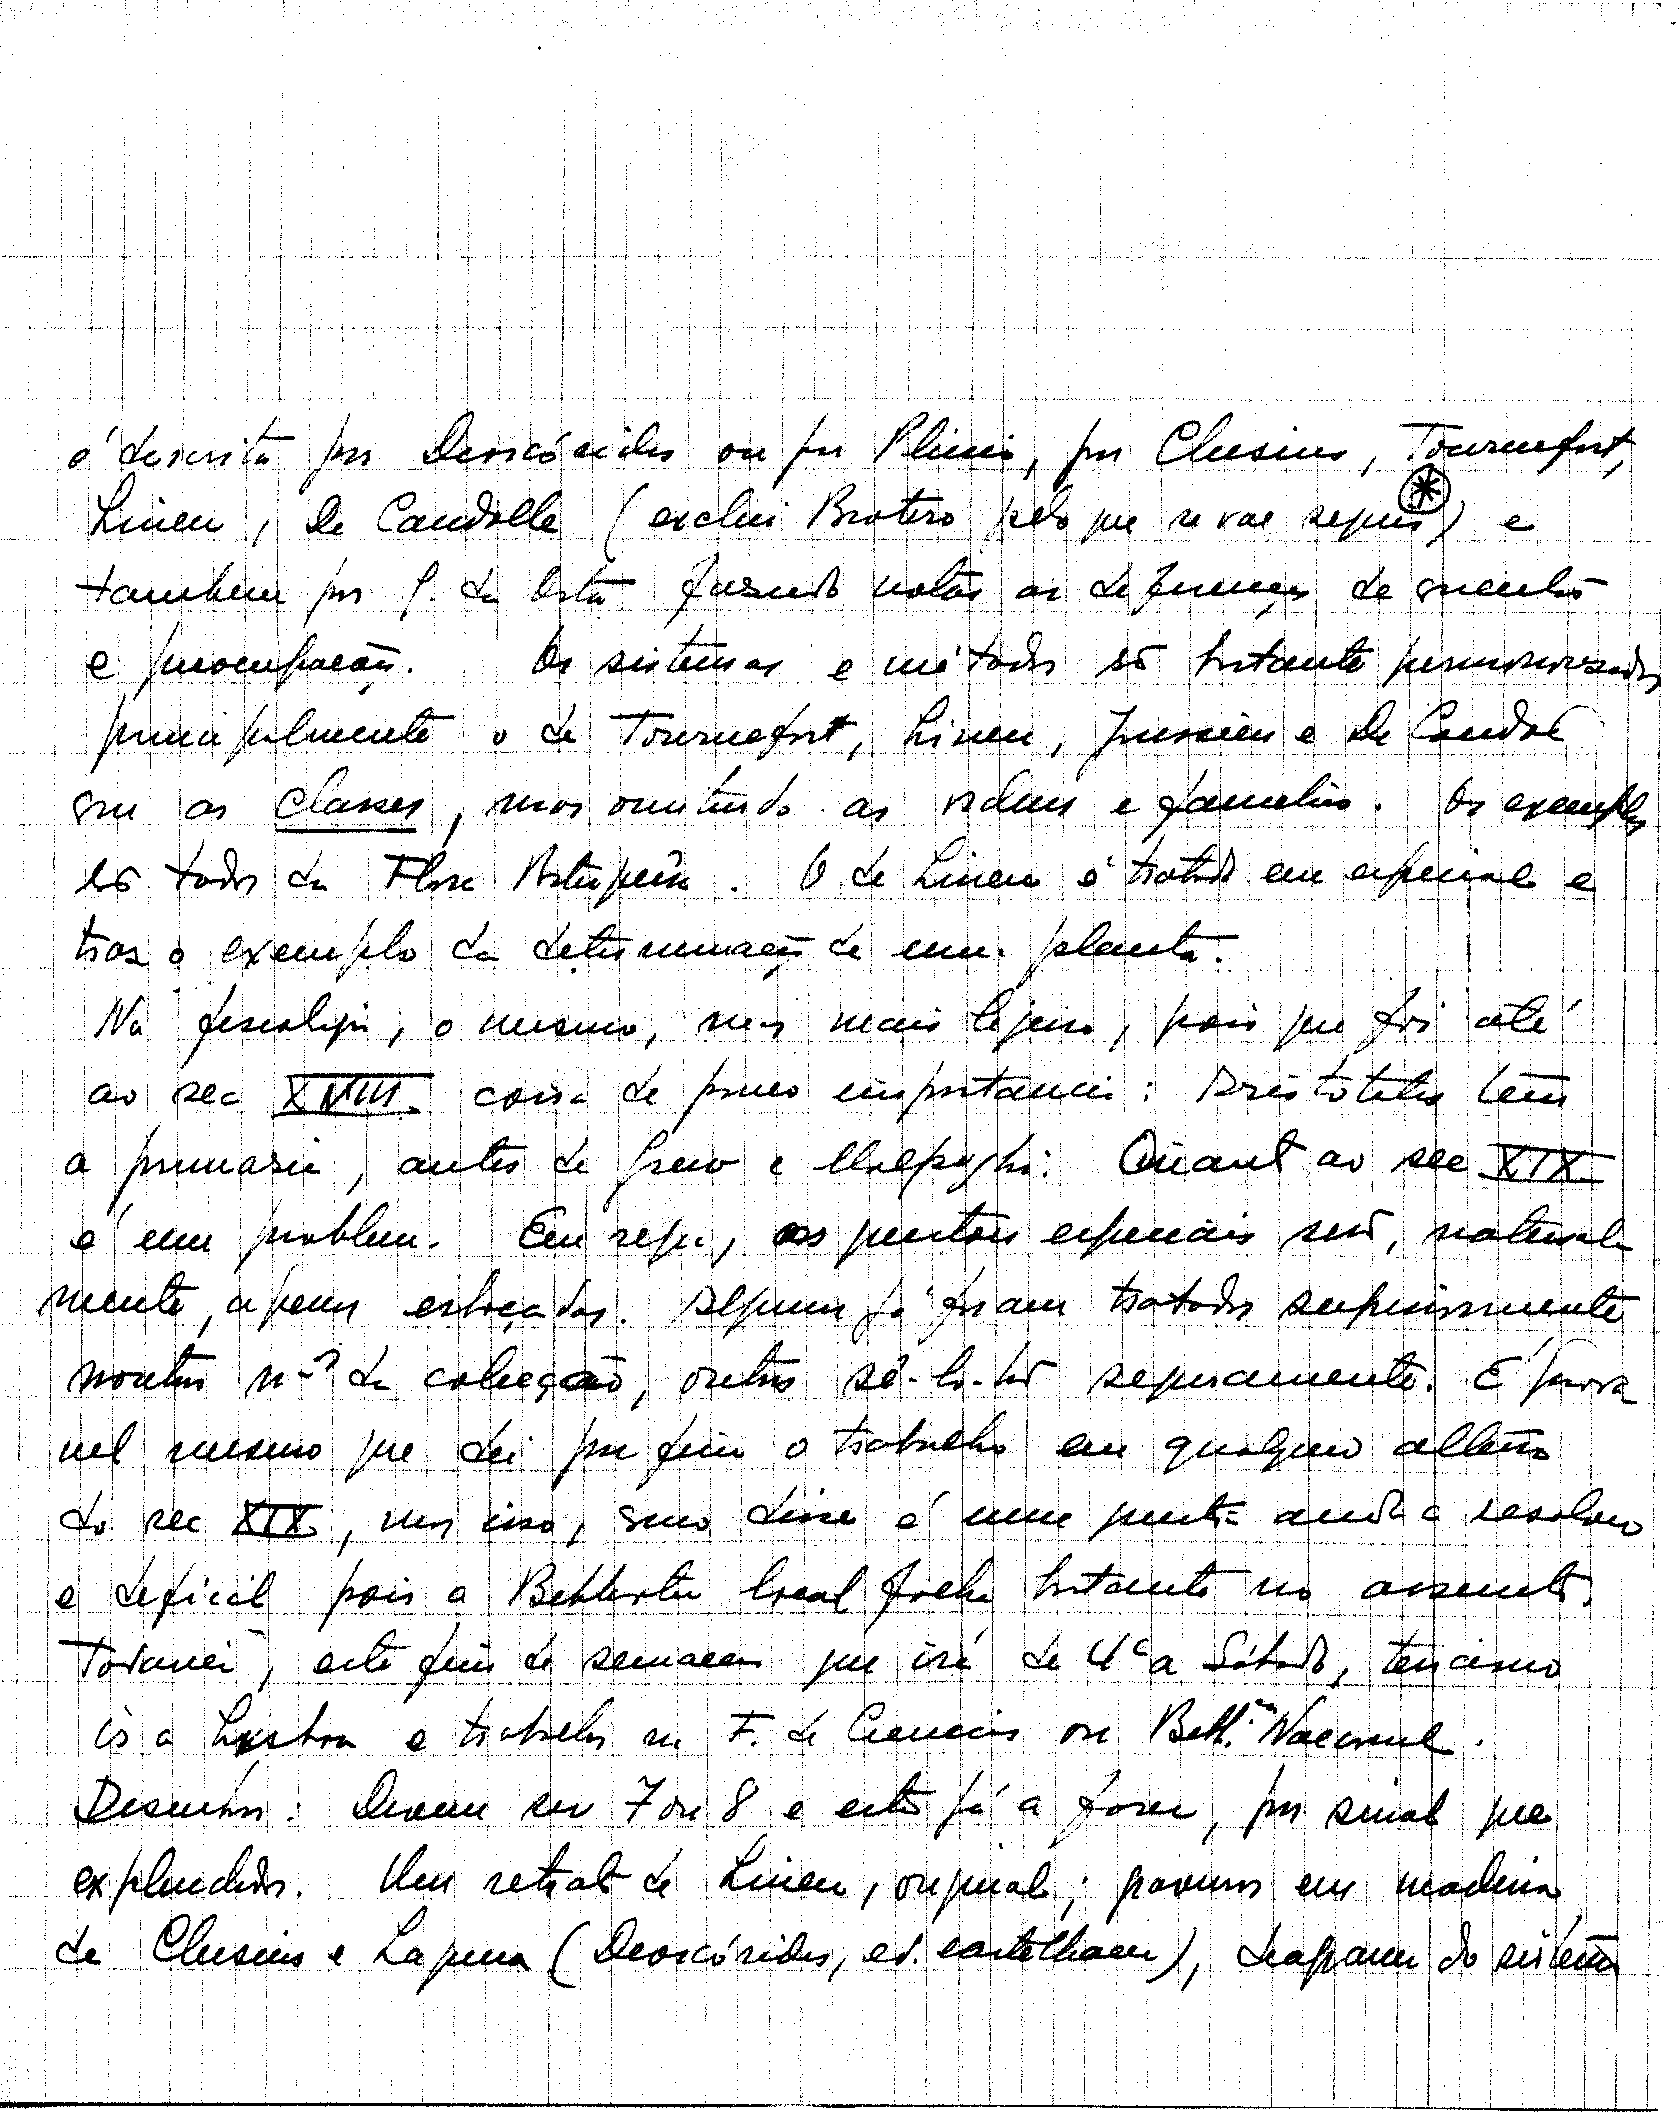 é descrita por Dioscórides ou por Plinio, por Clusius, Tournefort,
Lineu, De Candolle (exclui Brotero pelo que se vae seguir) e
tambem por G. da Orta fazendo notar as diferenças de
e preocupação. Os sistemas e métodos são bastante pormenorizados
principalmente o de Tournefort, Lineu, Jussieu e De Candole
com as classes, mas omitindo as ordens e familias. Os exemplos
são todos da Flora Portuguêsa. O de Lineu é tratado em especial e
traz o exemplo da determinação de uma planta.
Na fisiologia, o mesmo, mas mais ligeiro, pois que foi até
ao sec XVIII coisa de pouco importancia: Aristoteles tem
a primasia, antes de Grew e Malpighi. Quanto ao sec XIX
é um problema. Em regra, os pontos especiais serão, natural
mente, apenas esboçados. Alguns já foram tratados
noutros n.os da colecção, outros sê-lo-hão seguramente. É prova
vel mesmo que dei por fim o trabalho em qualquer altura
do sec XIX, mas isso, como disse é um ponto ainda a resolver
e dificil pois a Biblioteca local falha bastante no assunto.
Todavia, este fim de semana que irá de 4ª a Sábado, tenciono
ir a Lisboa e trabalhar na F. de Ciencias ou Bibl. Nacional.
Desenhos: Devem ser 7 ou 8 e estão já a fazer, por sinal que
explendidos. Um retrato de Lineu, original; gravuras em madeira
de Clusius e Laguna (Dioscórides, ed. castelhana), diagrama do sistema